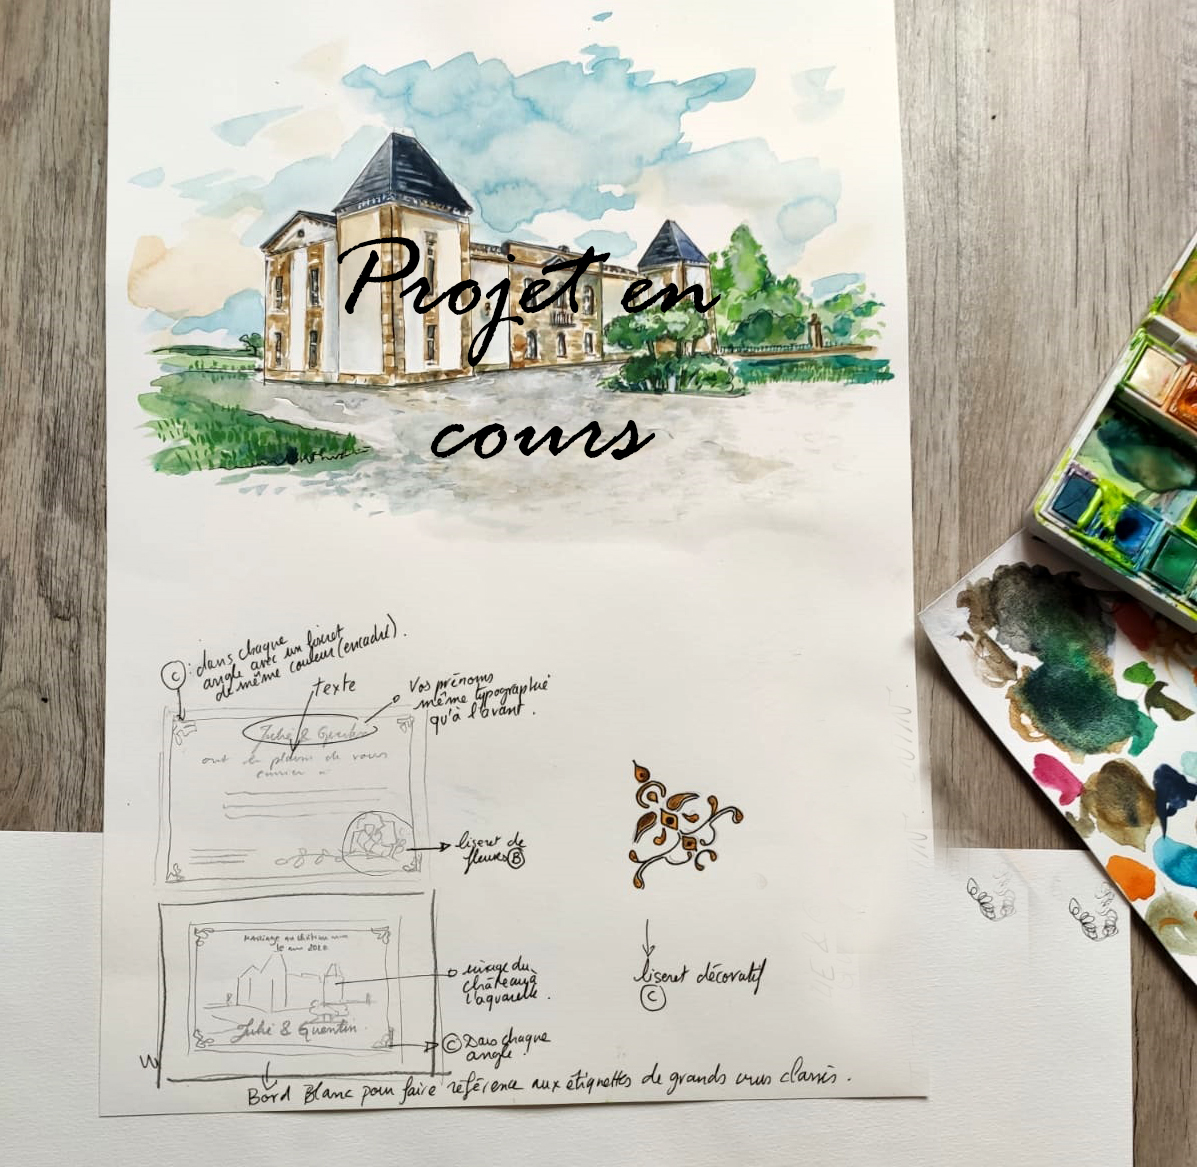 Projet en
cours
C : dans chaque
angle avec un
de même couleur (encadré).
texte
Vos prénoms
même typographie
qu'à l'avant.
Julie & Quentin
ont le plaisir de vous
liseret de
fleurs B
Mariage au château
10 2020
image du
château à
l'aquarelle.
Julie & Quentin
C Dans chaque
angle.
liseret décoratif
C
Bord Blanc pour faire référence aux étiquettes de grands crus classés.